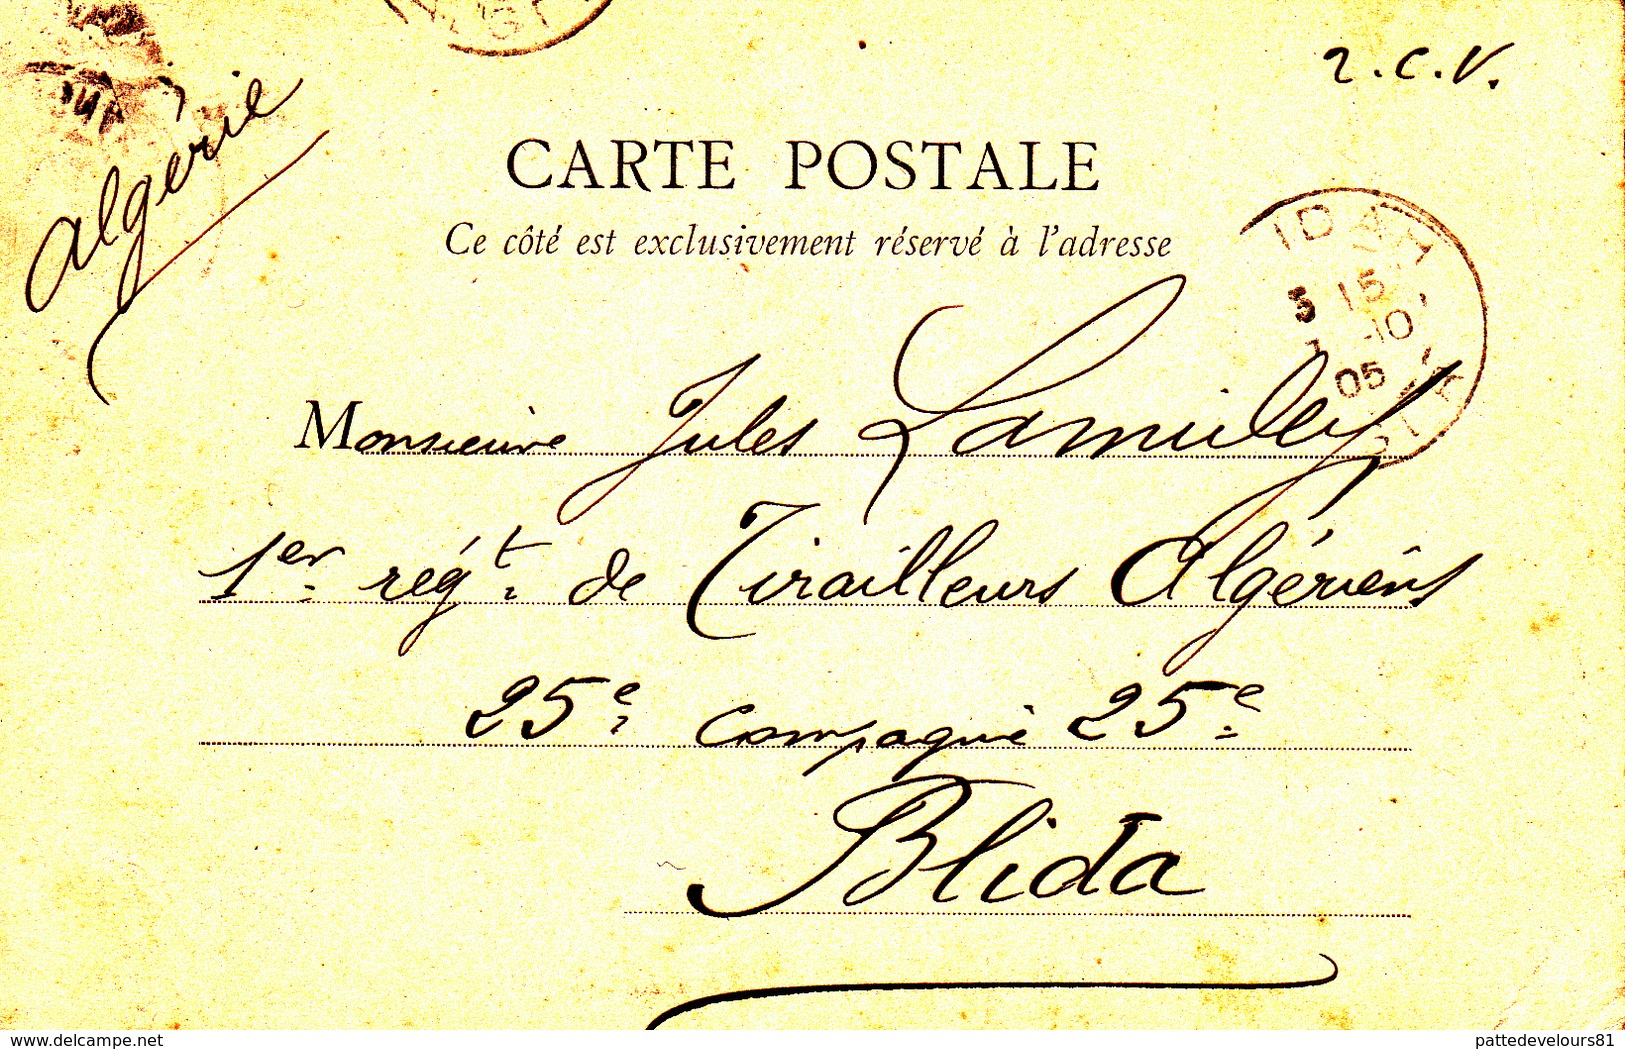 2.C.V.
Algérie
CARTE POSTALE
Ce côté est exclusivement réservé à l'adresse
IDA
3 15
-10
05
Monsieur Jules
1er régt. de Tirailleurs Algériens
25e Compagnie 25e
Blida
delcampe.net
pattedevelours81